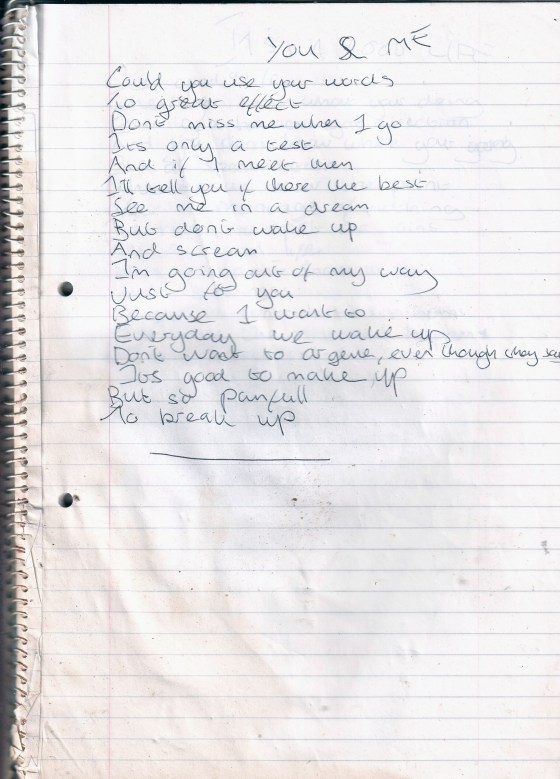 YOU & ME
Could you use your words
To great effect
Dont miss me when I go
Its only a test
And if I meet then
I'll tell you if there the best
See me in a dream
But don't wake up
And scream
I'm going out of my way
Just to you
Because I want to
Everyday we wake up
Don't want to argene, even though they say
Its good to make up
But so painfull
To break up